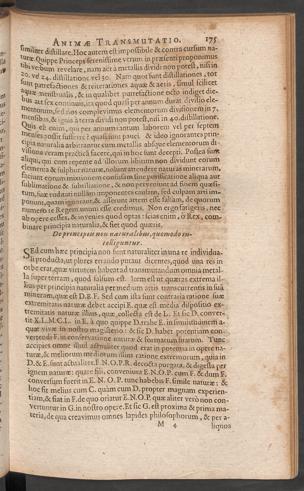 ANIMÆ TRANSMUTATIO. 175
similiter distillare. Hoc autem est impossibile & contra cursum na-
turæ. Quippe Princeps serenissime verum in præsenti proponimus
verbum revelare, nam aër a metallis dividi non potest, nisi in
20. vel 24. distillationes vel 30. Nam quot sunt distillationes, tot
sunt putrefactiones & reiterationes aquæ & aëris, simul scilicet
aquæ menstrualis, & in qualibet putrefactione octo indiget die-
bus aut sex continuis, ita quod quasi per annum durat divisio ele-
mentorum, sed nos complevimus elementorum divisionem in 7.
mensibus, & ignis à terra dividi non potest, nisi in 40. distillationib.
Quis est enim, qui per annum tantum laborem vel per septem
menses posset suffere? quasi sunt pauci, & ideo ignorantes prin-
cipia naturalia arbitrantur cum metallis absque elementorum di-
visione veram practicā facere, qui in hoc sunt decepti. Possent
aliqui, qui cum repente ad illorum libitum non dividunt eorum
elementa & sulphur naturæ, nolunt attendere naturæ minerarum,
faciunt eorum mixtionem confusam sine putrefactione aliqua aut
sublimatione & subtiliatione, & non perveniunt ad finem quæsi-
tum, suæ vadunt nullum imponentes culpam, sed culpam arti im-
ponunt, quam ignorant, & asserunt artem esse falsam, de quorum
numero te Regem unum esse credimus. Non ergo fatigeris, nec
ab opere cesses, & invenies quod optas: scias enim, ô Rex, com-
binare principia naturalia, & fiet quod quæris.
De principiis non naturalibus, quomodo in-
telliguntur.
SEd cum hæc principia non sunt naturaliter in una re individua-
li producta, ut plures errando putant dicentes, quod una res in
orbe erat, quæ virtutem habet ad transmutandum omnia metal-
la super terram, quod falsum est. Tamen ista quatuor extrema il-
lius per principia naturalia per medium actis transcurrentis in suâ
mineram, quæ est D. B. F. Sed cum ista sunt contraria ratione suæ
extremitatis naturæ debet accipi E. quæ est media dispositio ex-
tremitatis naturæ illius, quæ collecta est de L. Et sic D. conver-
tit X. L. M. C. L. in E. à quo quippe D. trahe E. in similitudinem a-
quæ vivæ in nostro magisterio: & sic D. habet potentiam con-
vertendi F. in conservatione naturæ & formatum suarum. Tunc
accipies omne illud actualiter quod erat in potentia in opere na-
turæ, & meliorem mediorum illius ratione extremorum, quia in
D. & E. sunt actualiter F. N. O. P. R. decocta purgata, & digesta per
ignem naturæ: quare fili, convenimus E. N. O. P. cum F. & dum E.
conversum fuerit in E. N. O. P. tunc habebis F. simile naturæ: &
hoc fit melius cum C. quàm cum D. propter magnam experien-
tiam, & fiat in F. de quo oriatur E. N. O. P. quæ aliter verò non con-
vertuntur in G. in nostro opere. Et sic G. est proxima & prima ma-
teria, de qua creavimus omnes lapides philosophorum, & per a-
M 4 liquos